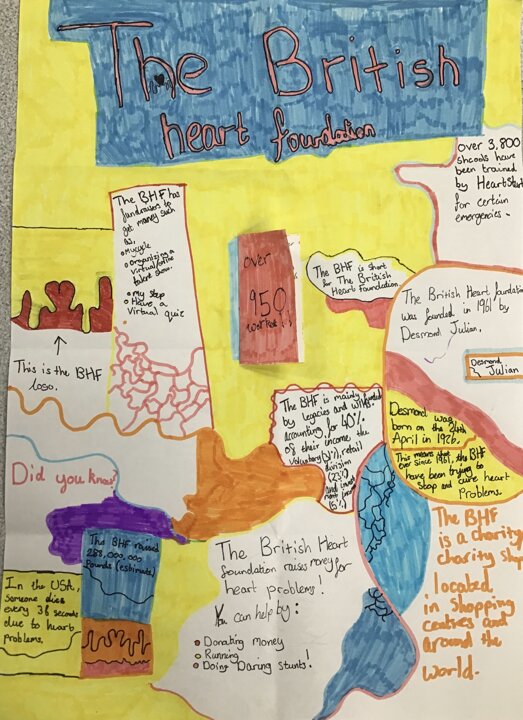 The British
heart foundation
Over 3,800
shcools have
been trained
by HeartStart
for certain
emergencies.
The BHF has
fundraisers to
get money such
as,
Mycycle
Organising a
virtual/offline
talent show.
my step
Have a
virtual quiz
Over
950
The BHF is short
for The British
Heart foundation.
The British Heart foundation
was founded in 1961 by
Desmond Julian.
Desmond
Julian
This is the BHF
logo.
The BHF is mainly funded
by legacies and wills.
Accounting for 40%
of their income the
Voluntary
retail
division
(23%)
and
Desmond was
born on the 24th
April in 1926.
This means that
ever since 1961, the BHF
have been trying to
stop and cure heart
Problems.
Did you know?
The BHF raised
288,000,000
Pounds (estimate)
In the USA,
someone dies
every 38 seconds
due to heart
problems.
The British Heart
foundation raises money for
heart problems!
You can help by:
Donating money
Running
Doing Daring stunts!
The BHF
is a charity
charity shop
located
in shopping
centres and
around the
world.